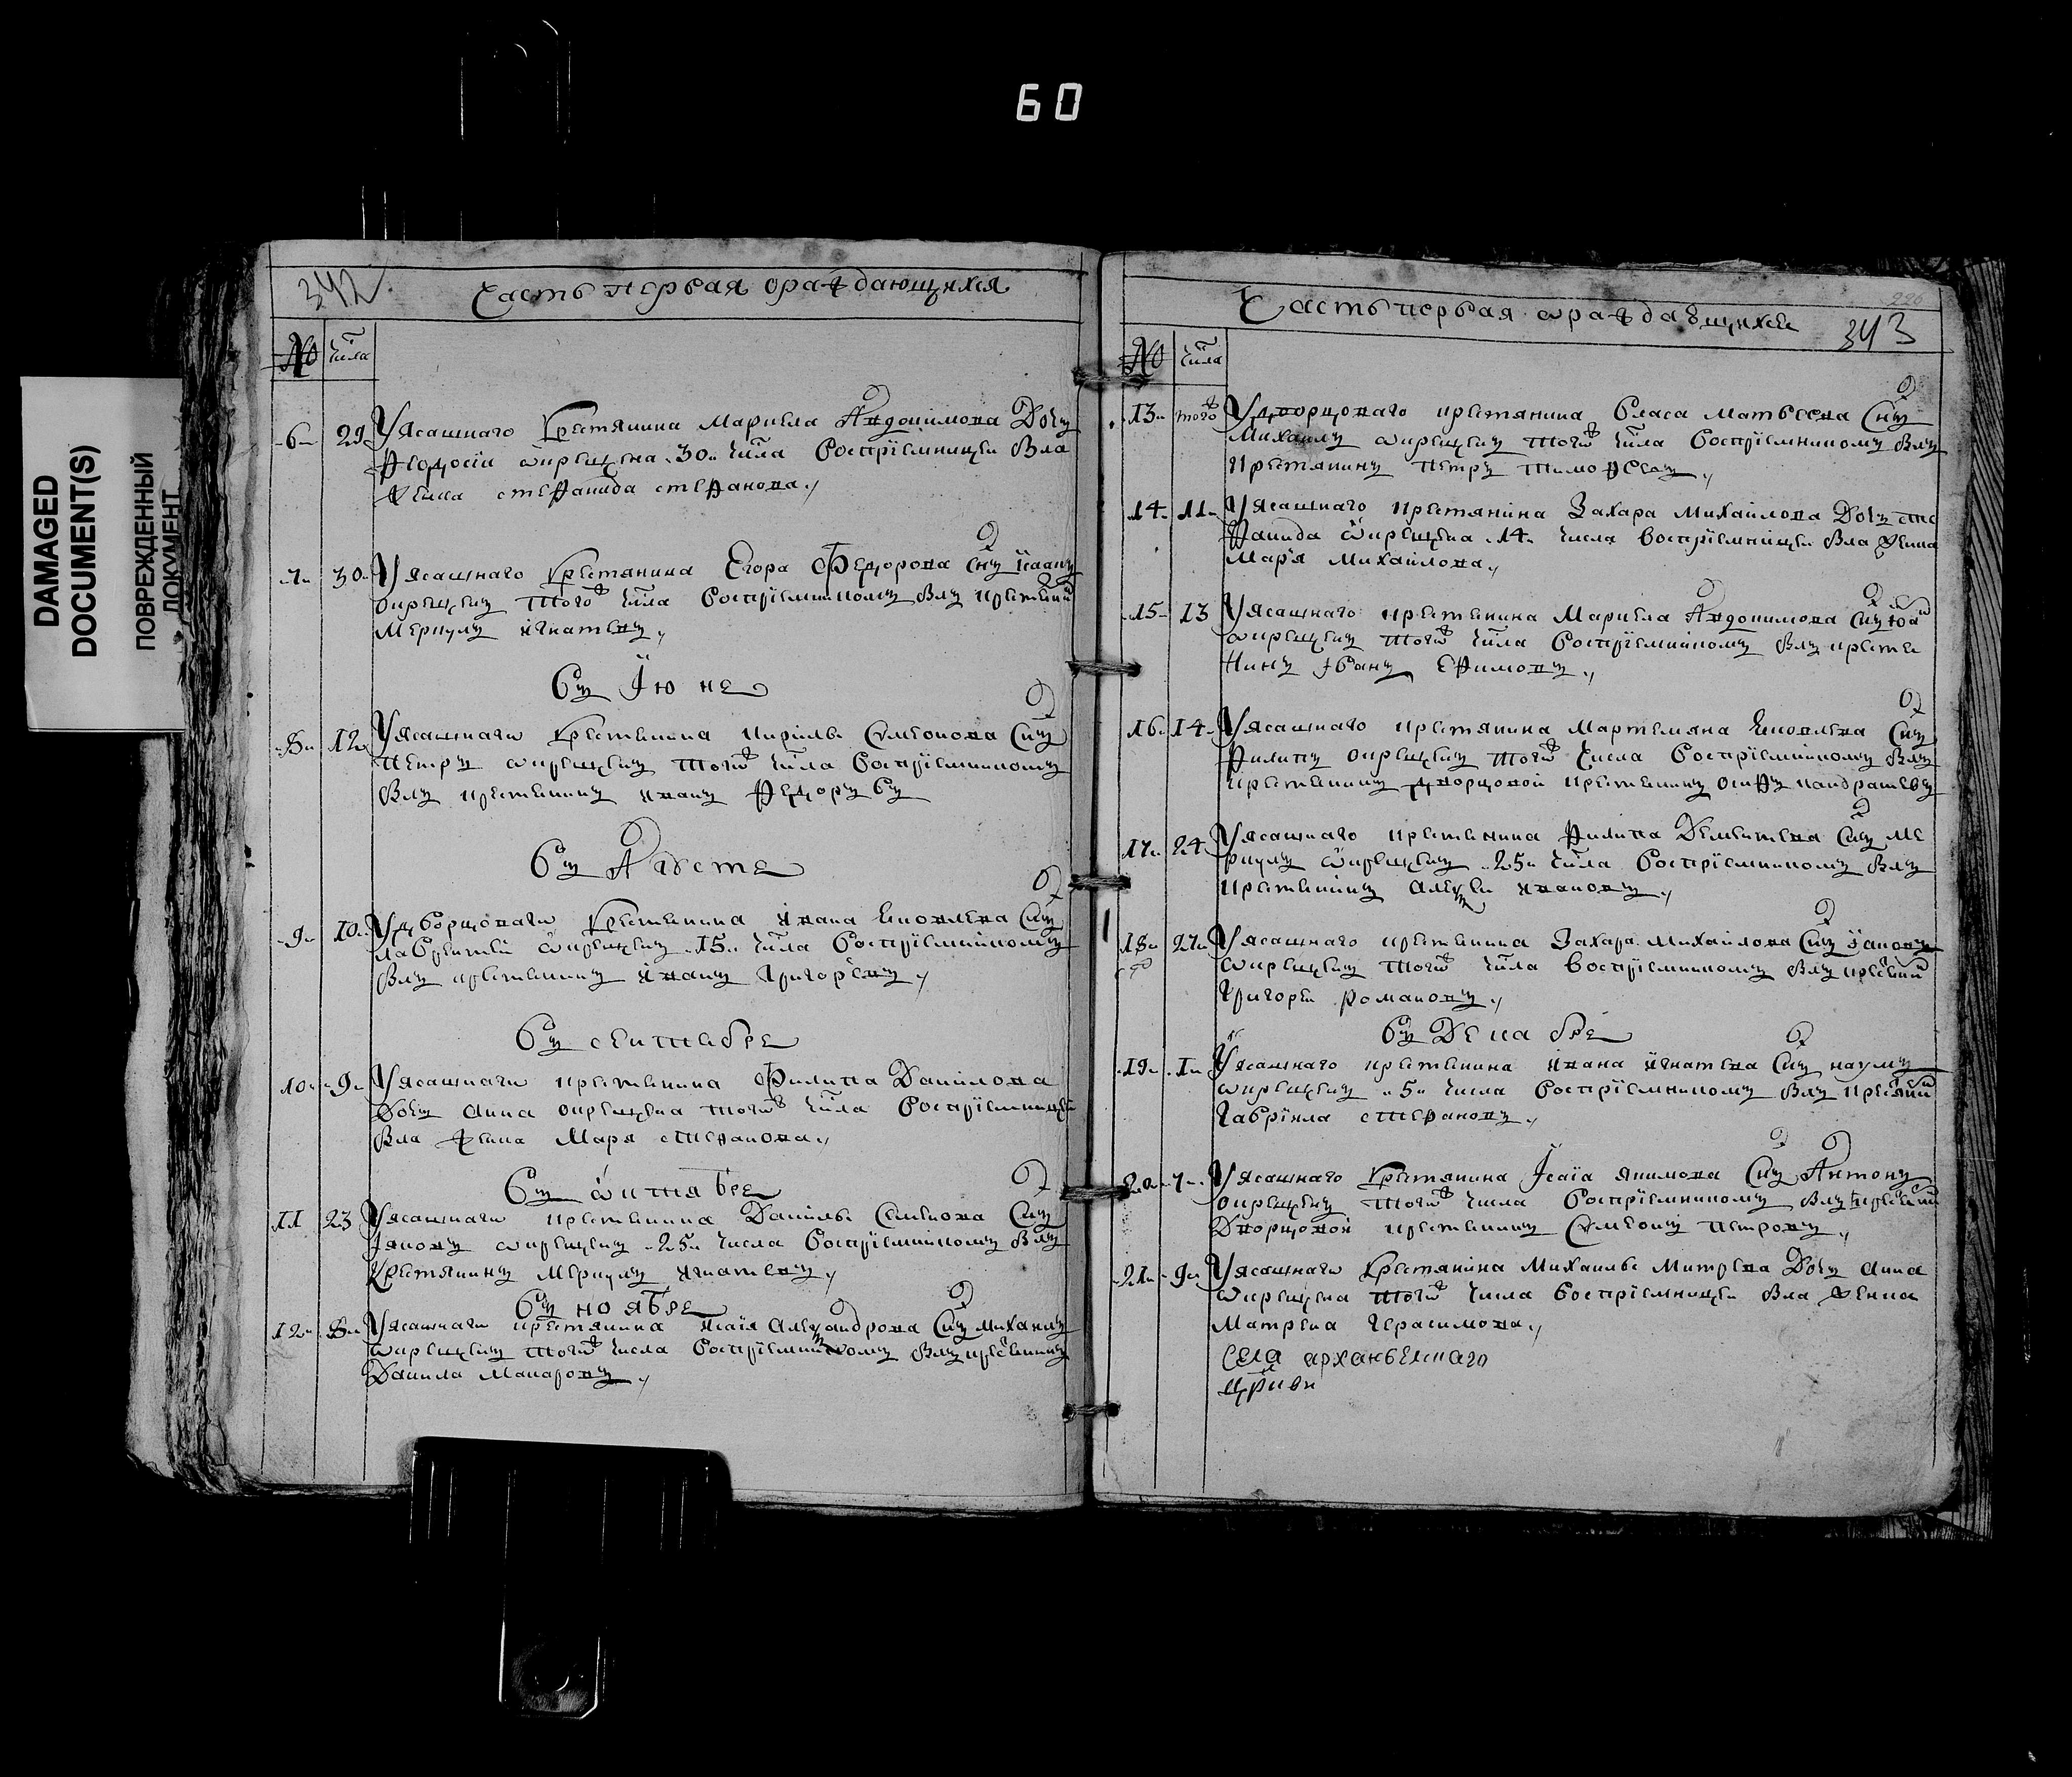 60
DAMAGED
DOCUMENT(S)
ПОВРЕЖДЕННЫЙ
ДОКУМЕНТ
342
Часть первая ораждающихся
№ числа
6 29 Уясашнаго крестянина Маркела Авдокимова Дочь
Федосїи окрещена 30 числа восприемницеи вла
жена стефанида стефанова
7 30 Уясашнаго крестянина Егора Федорова снъ
окрещенъ того числа восприемникомъ былъ
Меркулъ игнатевъ
Въ Июне
8 12 Уясашнаго крестянина кирилы Семионова снъ
петръ окрещенъ того числа восприемникомъ
былъ крестянинъ иванъ Федоровъ
Въ Августе
9 10 Удворцоваго крестянина ивана яковлева снъ
лаврентеи окрещенъ 15 числа восприемникомъ
былъ крестянинъ иванъ григоревъ
Въ сентябре
10 9 Уясашнаго крестянина Филипа Данилова
Дочь Анна окрещена того числа восприемницеи
была жена Маря стефанова
Въ октябре
11 23 Уясашнаго крестянина Данилы Семионова снъ
Яковъ окрещенъ 25 числа восприемникомъ былъ
крестянинъ Меркулъ игнатевъ
Въ ноябре
12 8 Уясашнаго крестянина исаия Александрова снъ михаилъ
окрещенъ того числа восприемникомъ былъ крестянинъ
Данила Макаровъ
Часть первая ораждающихся 343
№ числа
13 того Удворцоваго крестянина власа матвеева снъ
Михаилъ окрещенъ того числа восприемникомъ былъ
крестянинъ петръ тимофеевъ
14 11 Уясашнаго крестянина Захара михаилова Дочь сте
фанида окрещена 14 числа восприемницеи была жена
Маря Михаилова
15 13 Уясашнаго крестянина Маркела Авдокимова снъ
окрещенъ того числа восприемникомъ былъ крестя
нинъ иванъ Ефимовъ
16 14 Уясашнаго крестянина Мартемяна яковлева снъ
Филипъ окрещенъ того числа восприемникомъ былъ
крестянинъ дворцовой крестянинъ осифъ кандратевъ
17 24 Уясашнаго крестянина Филипа Дементева снъ ме
ркулъ окрещенъ 25 числа восприемникомъ былъ
крестянинъ алексеи ивановъ
18 27 Уясашнаго крестянина Захара Михаилова снъ яковъ
окрещенъ того числа восприемникомъ былъ
григореи романовъ
Въ Декабре
19 1 Уясашнаго крестянина ивана игнатева снъ наумъ
окрещенъ 5 числа восприемникомъ былъ
гаврила стефановъ
20 7 Уясашнаго крестянина Исаїа якимова снъ Антонъ
окрещенъ того числа восприемникомъ былъ
Дворцовой крестянинъ Семионъ петровъ
21 9 Уясашнаго крестянина Михаилы Митрева Дочь Анна
окрещена того числа восприемницеи была жена
Матрена Герасимова
села арханьгелскаго
црькви